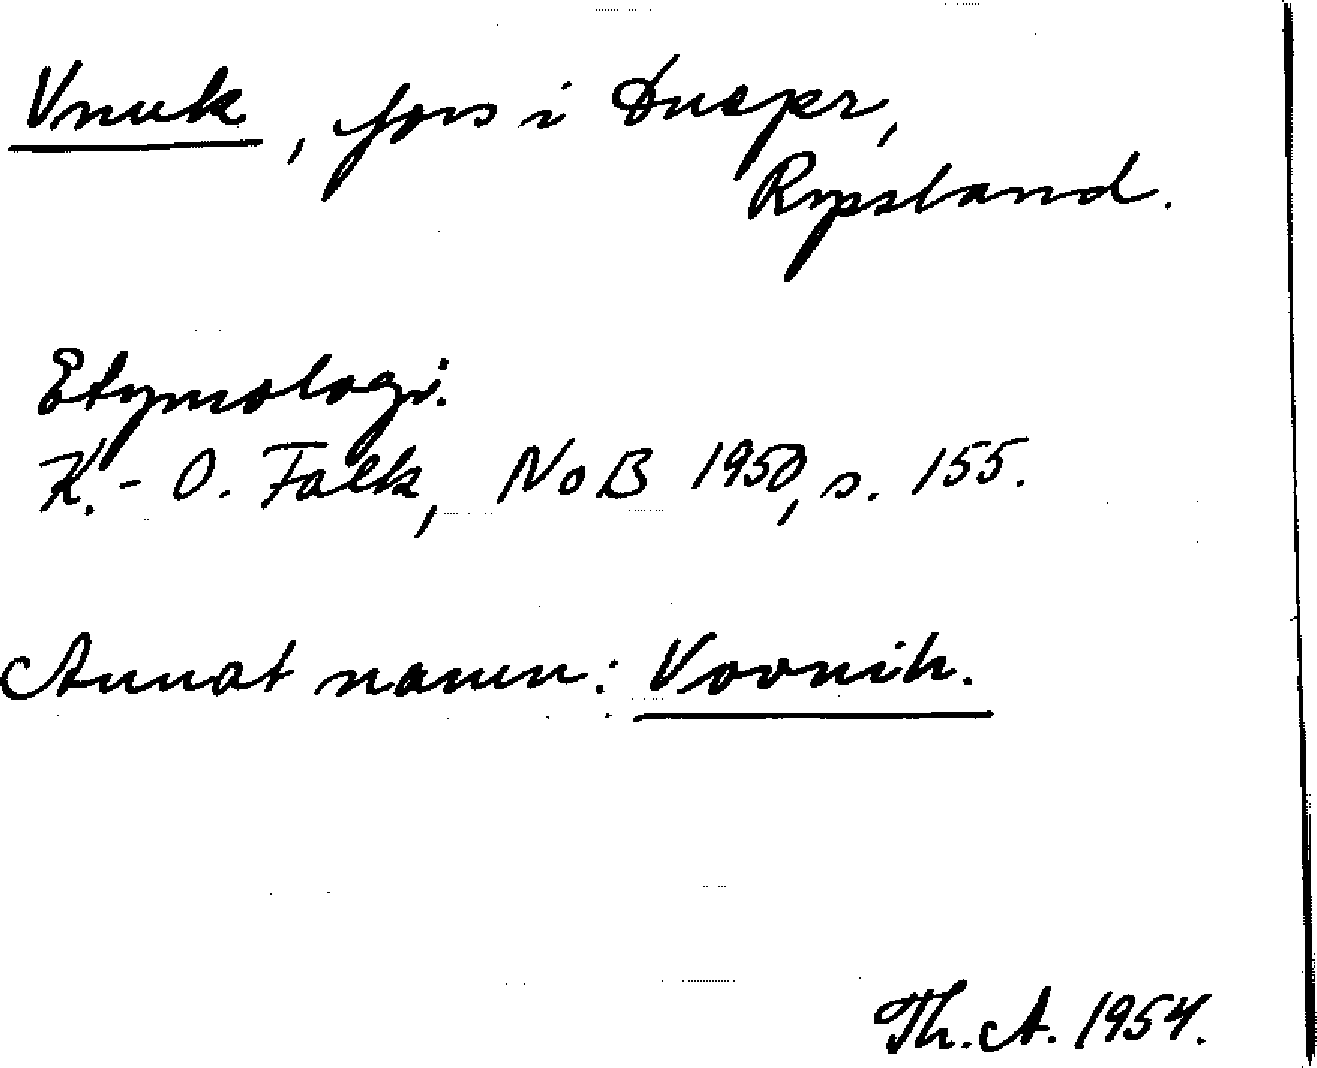 Vnuk, fors i Dnepr,
Ryssland.
Etymologi:
K.-O. Falk, NoB 1950, s. 155.
Annat namn: Vovnih.
Th. A. 1954.